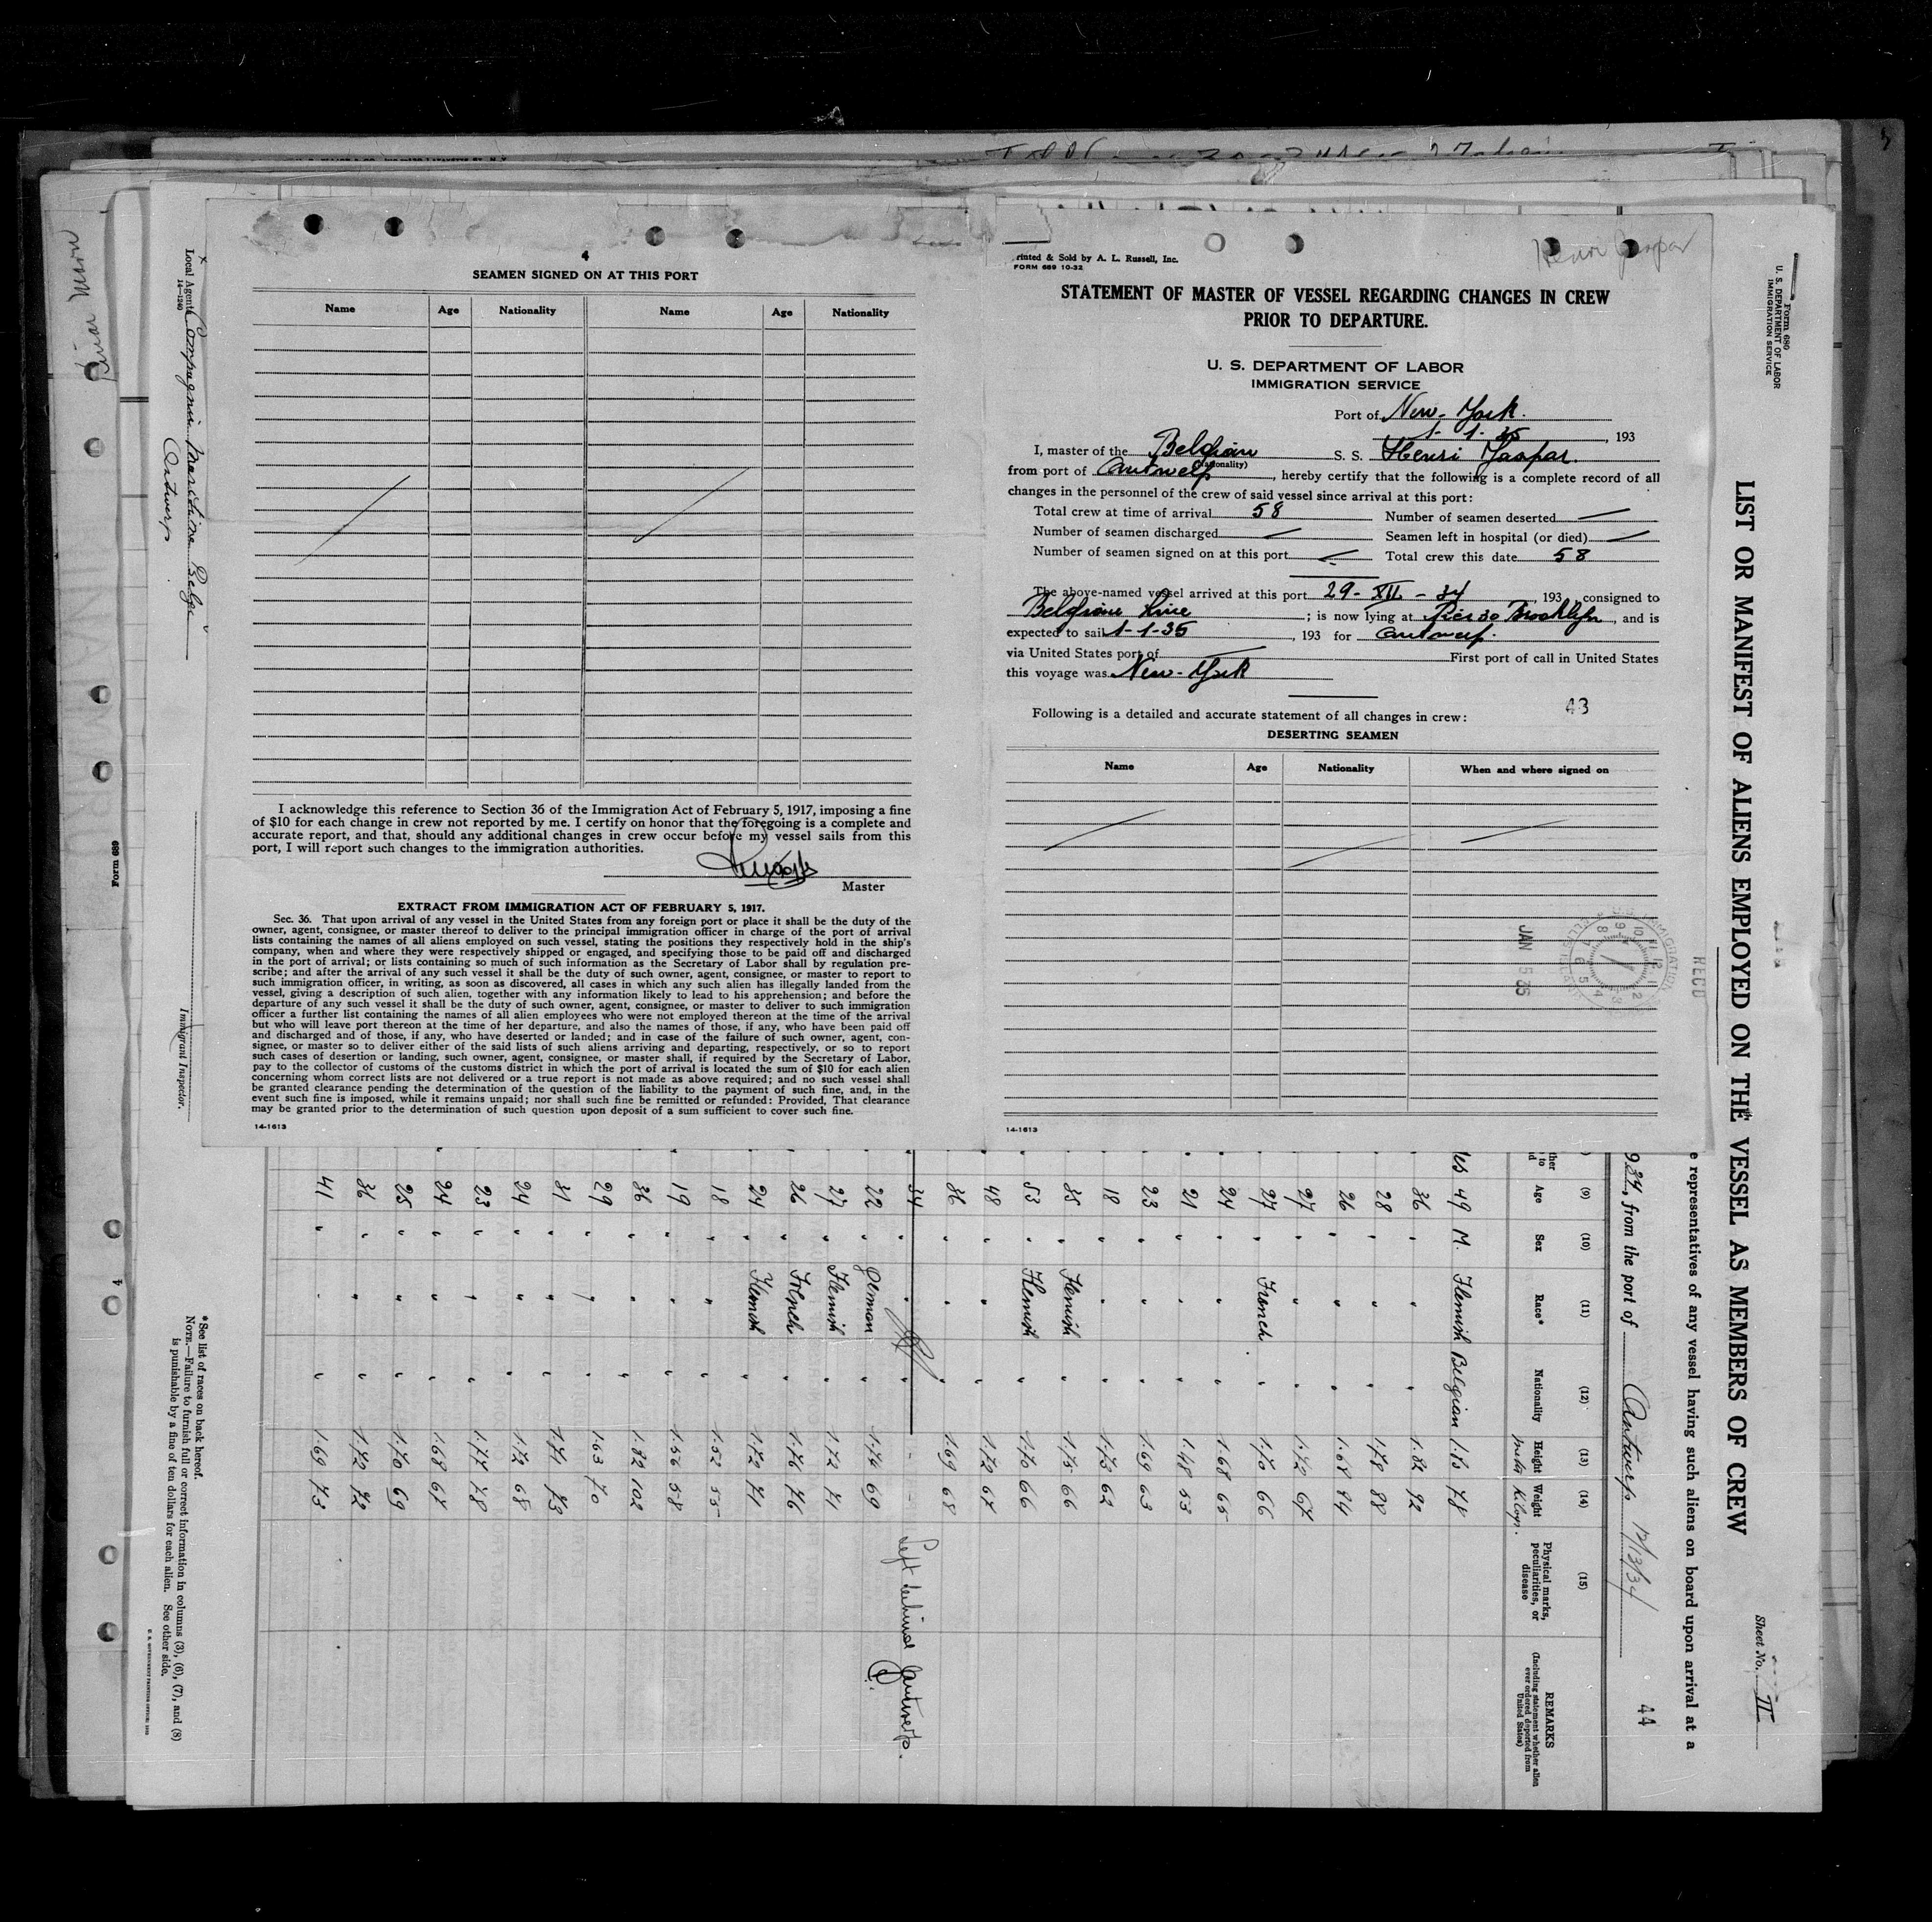 4
SEAMEN SIGNED ON AT THIS PORT
Name Age Nationality Name Age Nationality
I acknowledge this reference to Section 36 of the Immigration Act of February 5, 1917, imposing a fine
of $10 for each change in crew not reported by me. I certify on honor that the foregoing is a complete and
accurate report, and that, should any additional changes in crew occur before my vessel sails from this
port, I will report such changes to the immigration authorities.
Master
EXTRACT FROM IMMIGRATION ACT OF FEBRUARY 5, 1917.
Sec. 36. That upon arrival of any vessel in the United States from any foreign port or place it shall be the duty of the
owner, agent, consignee, or master thereof to deliver to the principal immigration officer in charge of the port of arrival
lists containing the names of all aliens employed on such vessel, stating the positions they respectively hold in the ship's
company, when and where they were respectively shipped or engaged, and specifying those to be paid off and discharged
in the port of arrival; or lists containing so much of such information as the Secretary of Labor shall by regulation pre-
scribe; and after the arrival of any such vessel it shall be the duty of such owner, agent, consignee, or master to report to
such immigration officer, in writing, as soon as discovered, all cases in which any such alien has illegally landed from the
vessel, giving a description of such alien, together with any information likely to lead to his apprehension; and before the
departure of any such vessel it shall be the duty of such owner, agent, consignee, or master to deliver to such immigration
officer a further list containing the names of all alien employees who were not employed thereon at the time of the arrival
but who will leave port thereon at the time of her departure, and also the names of those, if any, who have been paid off
and discharged and of those, if any, who have deserted or landed; and in case of the failure of such owner, agent, con-
signee, or master so to deliver either of the said lists of such aliens arriving and departing, respectively, or so to report
such cases of desertion or landing, such owner, agent, consignee, or master shall, if required by the Secretary of Labor,
pay to the collector of customs of the customs district in which the port of arrival is located the sum of $10 for each alien
concerning whom correct lists are not delivered or a true report is not made as above required; and no such vessel shall
be granted clearance pending the determination of the question of the liability to the payment of such fine, and, in the
event such fine is imposed, while it remains unpaid; nor shall such fine be remitted or refunded: Provided, That clearance
may be granted prior to the determination of such question upon deposit of a sum sufficient to cover such fine.
14-1613
Henri Jaspar
rinted & Sold by A. L. Russell, Inc.
FORM 689 10-32
STATEMENT OF MASTER OF VESSEL REGARDING CHANGES IN CREW
PRIOR TO DEPARTURE.
U. S. DEPARTMENT OF LABOR
IMMIGRATION SERVICE
Port of New-York.
1-1-35, 193
I, master of the Belgian S. S. Henri Jaspar.
(Nationality)
from port of Antwerp, hereby certify that the following is a complete record of all
changes in the personnel of the crew of said vessel since arrival at this port:
Total crew at time of arrival 58 Number of seamen deserted
Number of seamen discharged Seamen left in hospital (or died)
Number of seamen signed on at this port Total crew this date 58
The above-named vessel arrived at this port 29-XII-34, 193 , consigned to
Belgian Line; is now lying at Pier 30 Brooklyn, and is
expected to sail 1-1-35, 193 for Antwerp.
via United States port of First port of call in United States
this voyage was New-York
43
Following is a detailed and accurate statement of all changes in crew:
DESERTING SEAMEN
Name Age Nationality When and where signed on
JAN 5 35
RECD
14-1613
Form 680
U. S. DEPARTMENT OF LABOR
IMMIGRATION SERVICE
LIST OR MANIFEST OF ALIENS EMPLOYED ON THE VESSEL AS MEMBERS OF CREW
Sheet No. II
e representatives of any vessel having such aliens on board upon arrival at a
934, from the port of Antwerp 12/13/34
44
(9) (10) (11) (12) (13) (14) (15)
Age Sex Race* Nationality Height Weight Physical marks, peculiarities, or disease REMARKS
(Including statement whether alien ever ordered deported from United States)
49 M. Flemish Belgian 1.70 78
36 " " " 1.82 92
28 " " " 1.78 88
26 " " " 1.68 84
27 " " " 1.72 67
27 " French " 1.70 66
24 " " " 1.68 65
21 " " " 1.48 53
23 " " " 1.69 63
18 " " " 1.73 62
35 " Flemish " 1.75 66
53 " Flemish " 1.70 66
48 " " " 1.72 67
36 " " " 1.69 68
34 " " " Left behind Antwerp.
22 " German " 1.76 69
27 " Flemish " 1.72 71
26 " French " 1.76 76
24 " Flemish " 1.72 71
18 " " " 1.52 55
19 " " " 1.56 58
36 " " " 1.82 102
29 " " " 1.63 70
31 " " " 1.71 73
24 " " " 1.72 68
23 " " " 1.77 78
24 " " " 1.68 67
25 " " " 1.70 69
36 " " " 1.72 72
41 " " " 1.69 73
*See list of races on back hereof.
NOTE.—Failure to furnish full or correct information in columns (3), (6), (7), and (8)
is punishable by a fine of ten dollars for each alien. See other side.
Local Agents Compagnie Maritime Belge
14-1240
Antwerp
Immigrant Inspector.
Form 689
4